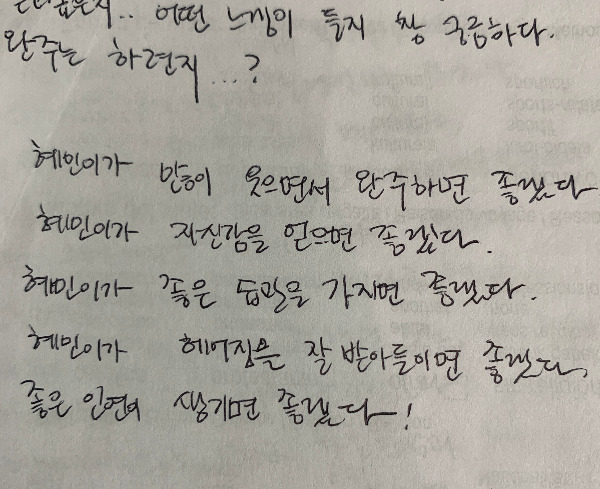 어떤 느낌이 들지 참 궁금하다.
완주는 하련지...?
혜민이가 많이 웃으면서 완주하면 좋겠다
혜민이가 자신감을 얻으면 좋겠다.
혜민이가 좋은 습관을 가지면 좋겠다.
혜민이가 헤어짐을 잘 받아들이면 좋겠다.
좋은 인연이 생기면 좋겠다!